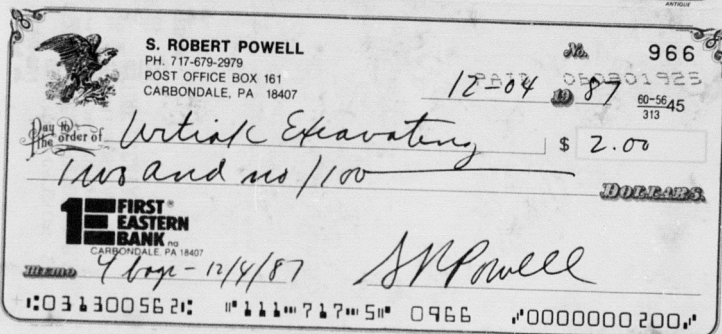 ANTIQUE
S. ROBERT POWELL
PH. 717-679-2979
POST OFFICE BOX 161
CARBONDALE, PA 18407
No. 966
PAID 050301925
12-04 19 87 60-5645
313
Pay to the order of Urtiak Excavating $ 2.00
Two and no/100 DOLLARS
1E FIRST EASTERN BANK na
CARBONDALE, PA 18407
Memo 4 bags - 12/4/87 S R Powell
⑆031300562⑆ ⑈111⑉717⑉5⑈ 0966 ⑇0000000200⑇